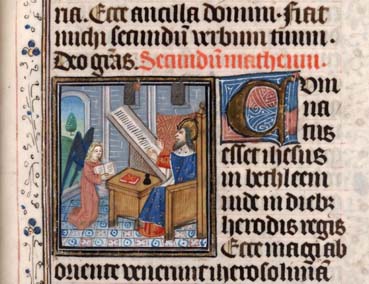 ria. Ecce ancilla domini. Fiat
michi secundũ verbum tuum.
Deo grãs. Secundũ matheum.
Cum
na
tus
esset ihesus
in bethleem
iude in dieb;
herodis regis
Ecce magi ab
oriente venerunt iherosolimã